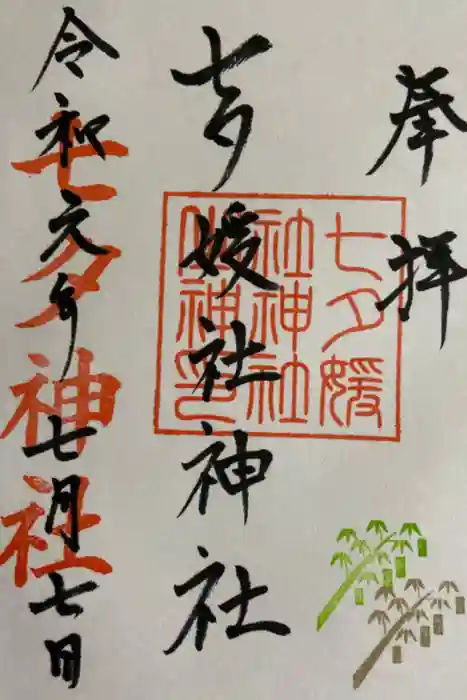 奉拝
七夕
媛社神社
七夕媛
社神社
七夕神社
令和元年七月七日